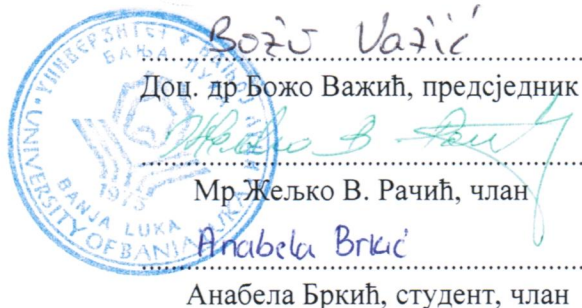 Božo Važić
Доц. др Божо Важић, предсједник
Мр Жељко В. Рачић, члан
Anabela Brkić
Анабела Бркић, студент, члан
УНИВЕРЗИТЕТ У БАЊОЈ ЛУЦИ
БАЊА ЛУКА
UNIVERSITY OF BANJA LUKA
BANJA LUKA
1975